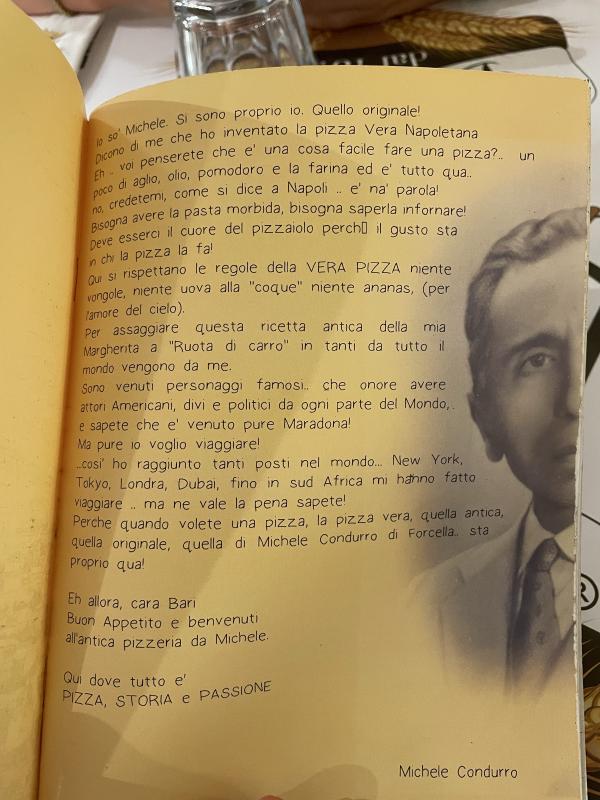 Io so' Michele. Si sono proprio io. Quello originale!
Dicono di me che ho inventato la pizza Vera Napoletana
Eh .. voi penserete che e' una cosa facile fare una pizza?.. un
poco di aglio, olio, pomodoro e la farina ed e' tutto qua..
no, credetemi, come si dice a Napoli .. e' na' parola!
Bisogna avere la pasta morbida, bisogna saperla infornare!
Deve esserci il cuore del pizzaiolo perch▯ il gusto sta
in chi la pizza la fa!
Qui si rispettano le regole della VERA PIZZA niente
vongole, niente uova alla "coque" niente ananas, (per
l'amore del cielo).
Per assaggiare questa ricetta antica della mia
Margherita a "Ruota di carro" in tanti da tutto il
mondo vengono da me.
Sono venuti personaggi famosi.. che onore avere
attori Americani, divi e politici da ogni parte del Mondo,.
e sapete che e' venuto pure Maradona!
Ma pure io voglio viaggiare!
..cosi' ho raggiunto tanti posti nel mondo... New York,
Tokyo, Londra, Dubai, fino in sud Africa mi hanno fatto
viaggiare .. ma ne vale la pena sapete!
Perche quando volete una pizza, la pizza vera, quella antica,
quella originale, quella di Michele Condurro di Forcella.. sta
proprio qua!
Eh allora, cara Bari
Buon Appetito e benvenuti
all'antica pizzeria da Michele.
Qui dove tutto e'
PIZZA, STORIA e PASSIONE
Michele Condurro
®